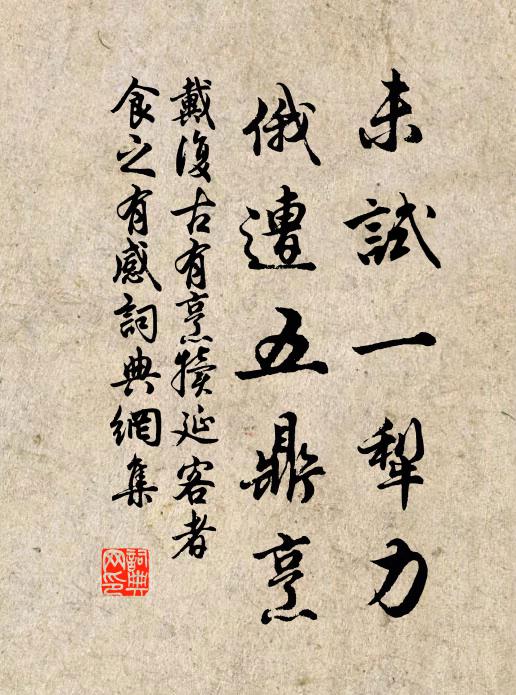 未試一犁力
俄遭五鼎烹
戴復古有烹犢延客者
食之有感詞典網集
詞典
网印